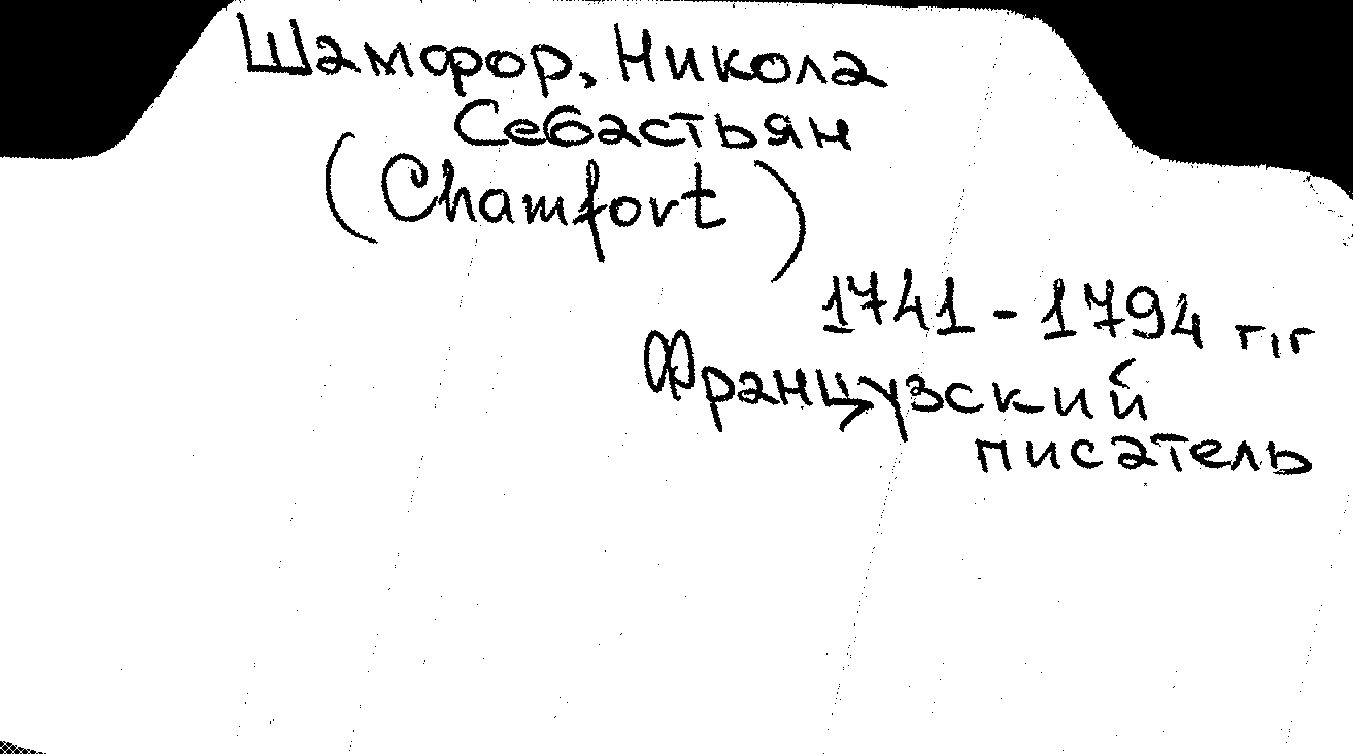 Шамфор, Никола
Себастьян
(Chamfort)
1741-1794 г,г
Французский
писатель